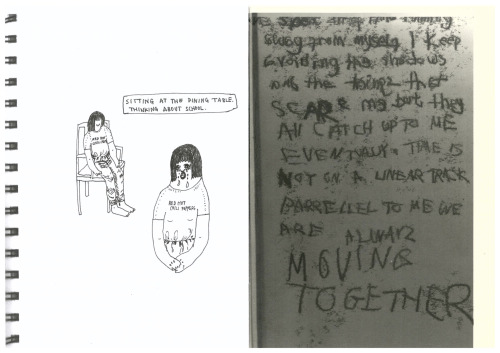 SITTING AT THE DINING TABLE.
THINKING ABOUT SCHOOL.
RED HOT
CHILI PEPPERS
I spent
running
away from myself I keep
avoiding the shadows
and the things that
SCARE me but they
All CATCH UP TO ME
EVENTUALLY. TIME IS
NOT ON A LINEAR TRACK
PARRELLEL TO ME WE
ARE ALWAYZ
MOVING
TOGETHER